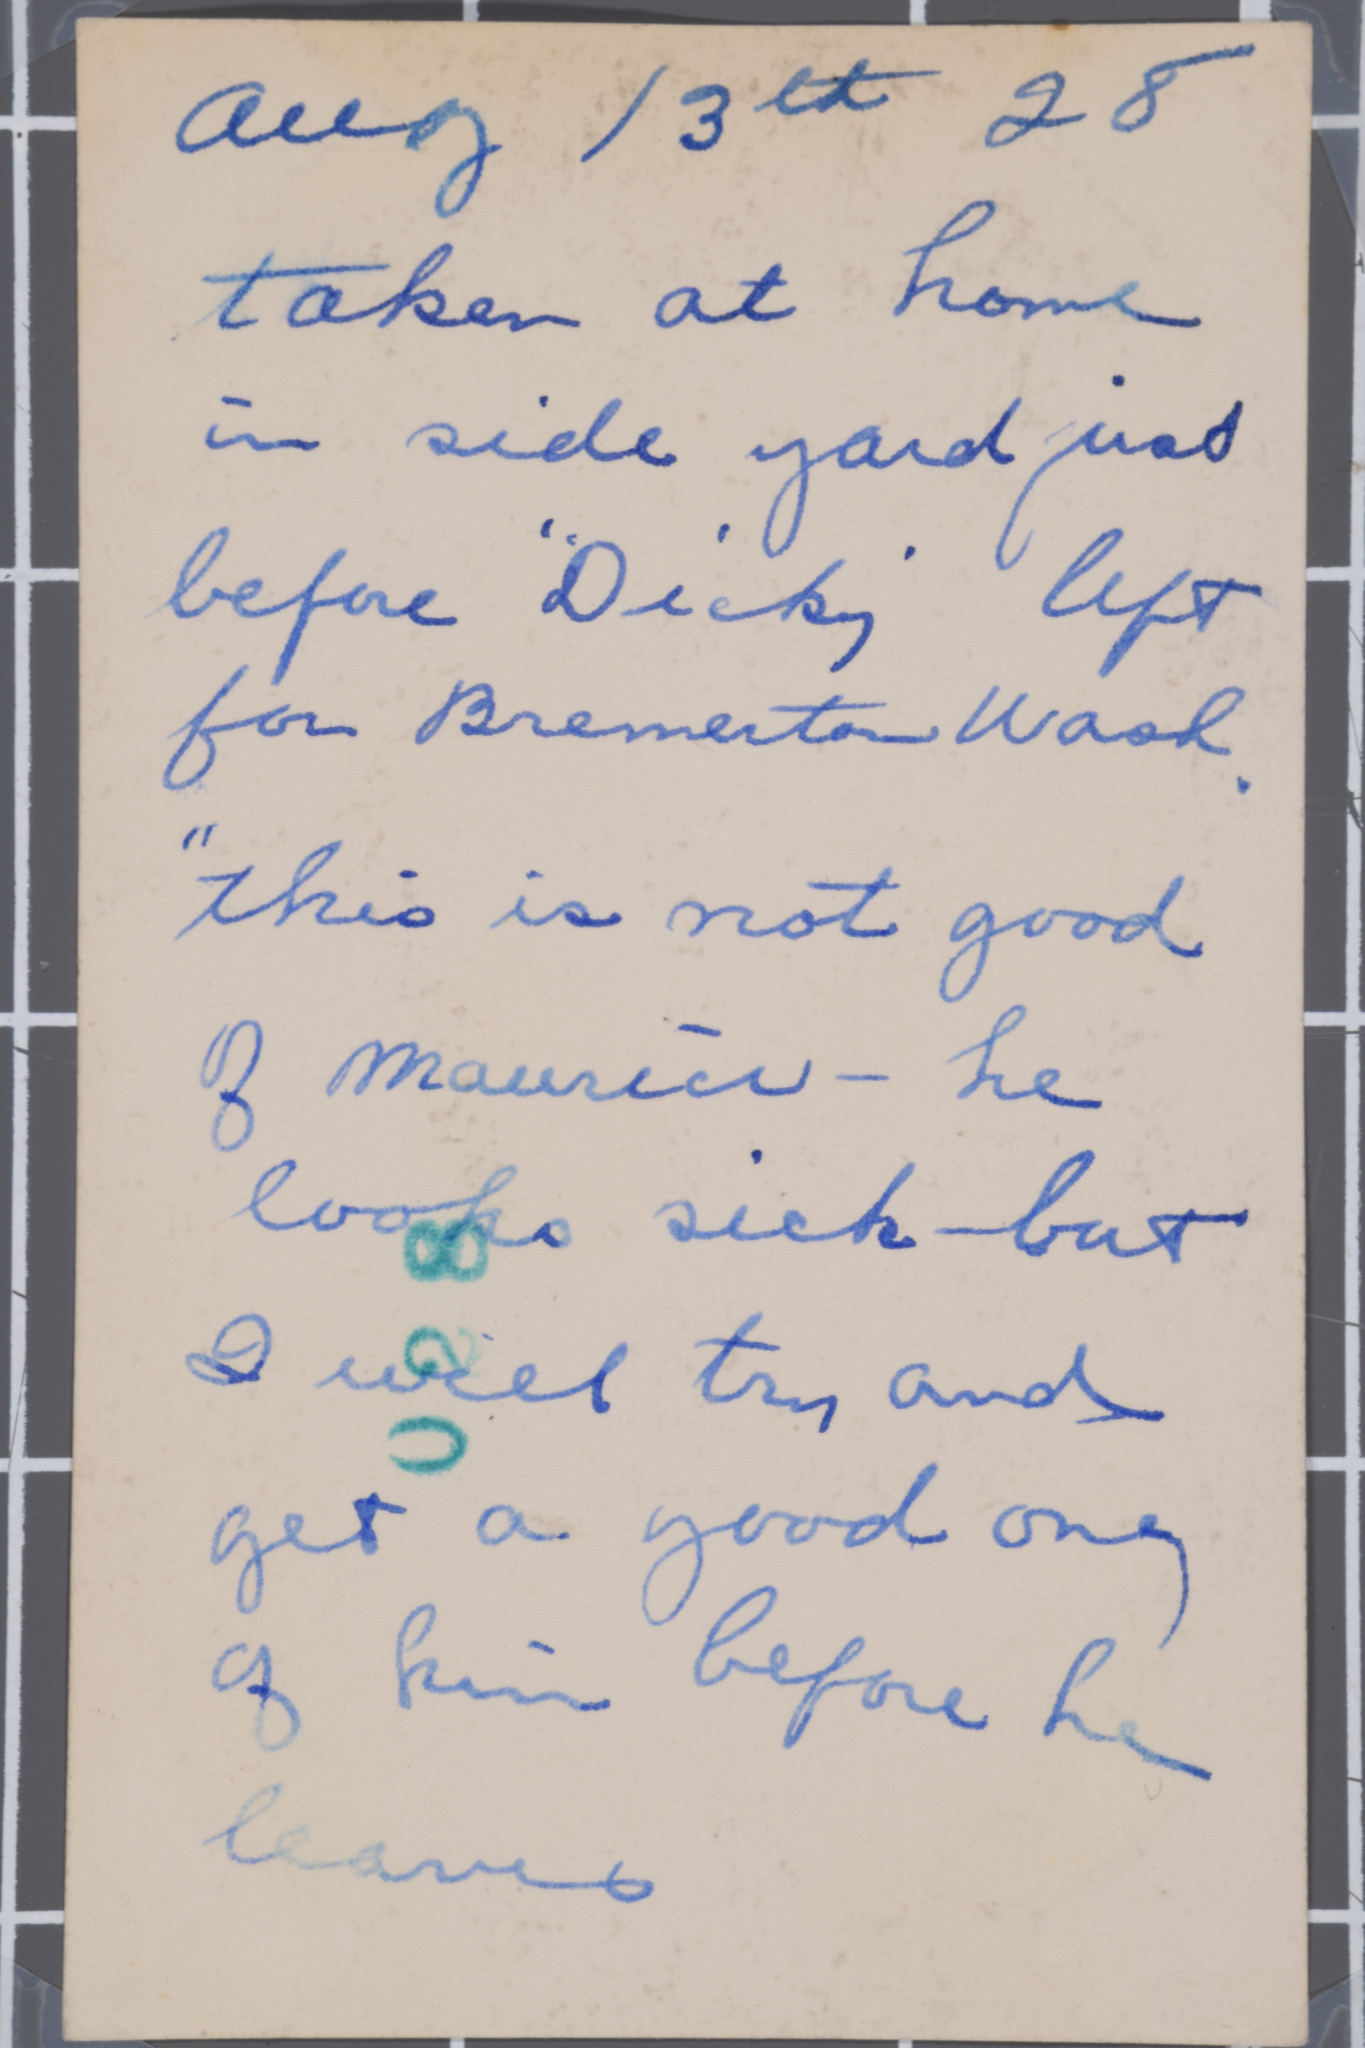 Aug 13th 28
taken at home
in side yard just
before "Dicky" left
for Bremerton Wash.
"this is not good
of Maurice - he
looks sick - but
I will try and
get a good one,
of him before he
leaves